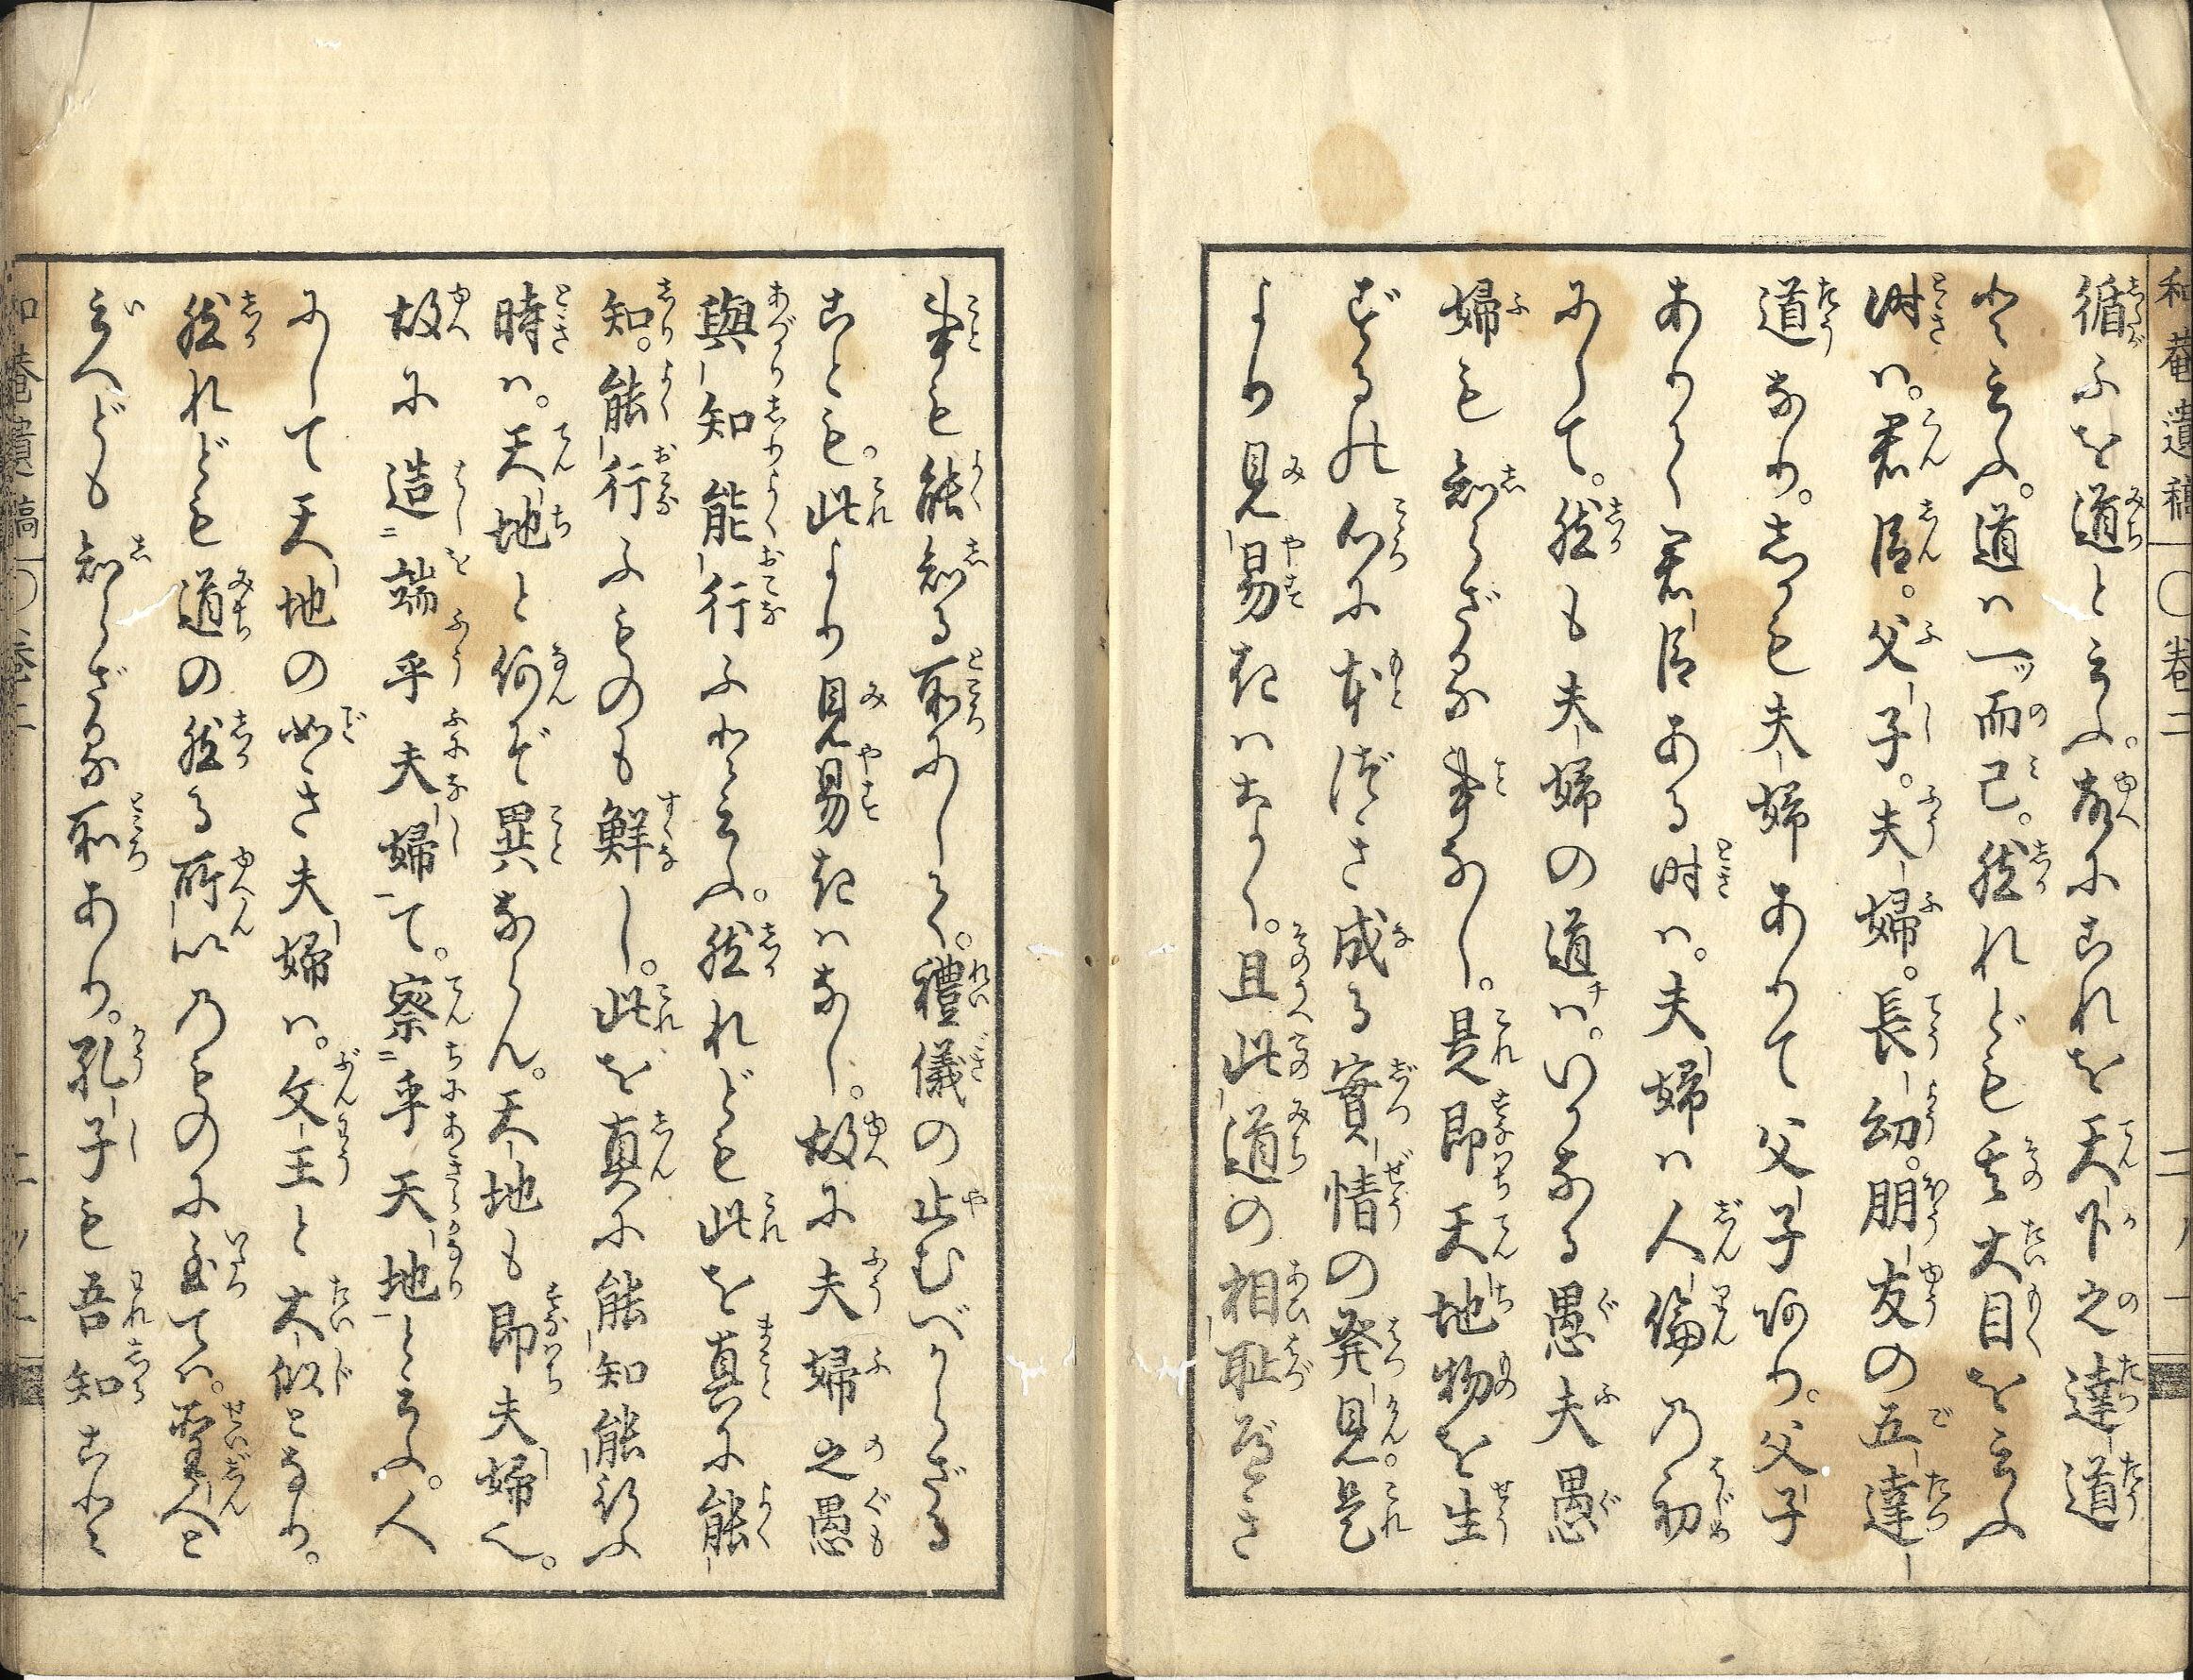 和菴遺稿 ○巻二 二ノ一
循ふを道と云ふ。故にこれを天下之達道
と云ふ。道ハ一ッ而已。然れども其大目を云ふ
時ハ。君臣。父子。夫婦。長幼。朋友の五達
道なり。しかも夫婦ありて父子あり。父子
ありて君臣ある時ハ。夫婦ハ人倫乃初
にして。然も夫婦の道ハ。いかなる愚夫愚
婦も知らざる事なし。是即天地物を生
ずるの心に本づき成る實情の発見是
より見易きハなく。且此道の相耻べき
事も能知る所にして。禮儀の止むべからざる
ことも。此より見易きハなし。故に夫婦之愚
與知能行ふと云ふ。然れども此を真に能
知。能行ふものも鮮し。此を真に能知能行ふ
時ハ。天地と何ぞ異ならん。天地も即夫婦也。
故に造端乎夫婦て。察乎天地と云ふ。人
にして天地の如き夫婦ハ。文王と太姒となり。
然れども道の然る所以乃ものに至てハ。聖人と
云へども知らざる所あり。孔子も吾知こと
和菴遺稿 ○巻二